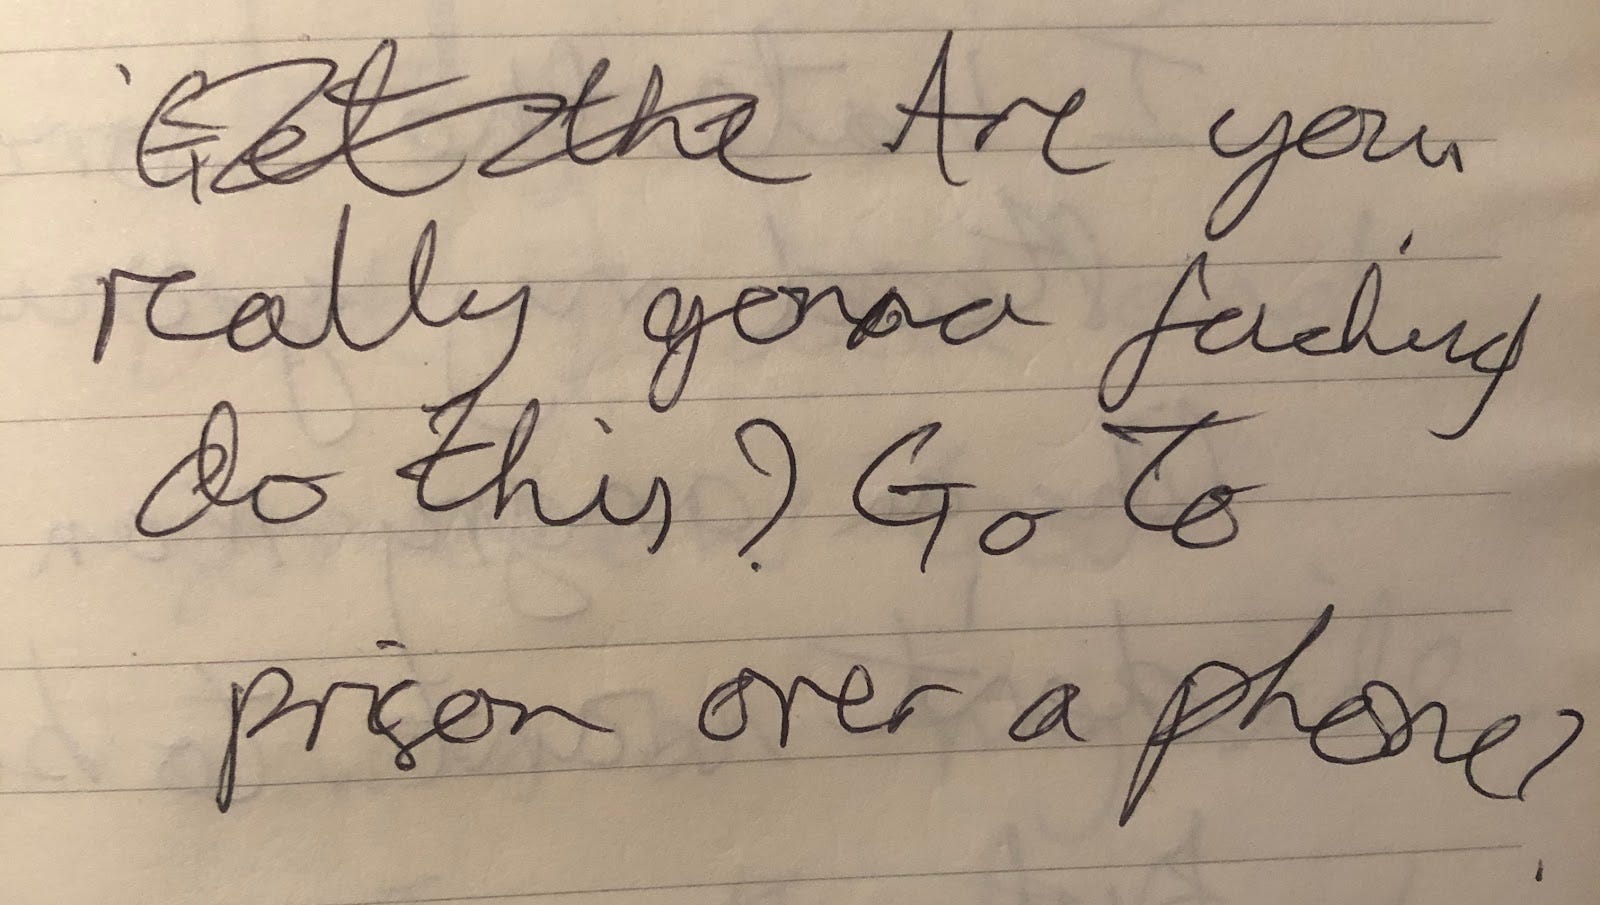 'Get the Are you
really gonna fucking
do this? Go to
prison over a phone?